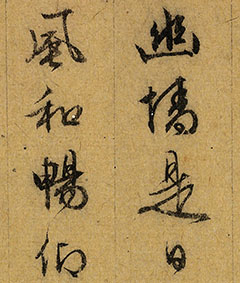 幽情是日
風和暢仰